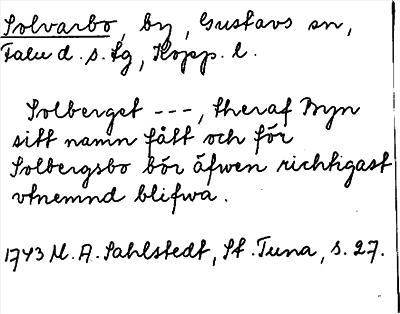 Solvarbo, by, Gustavs sn,
Falu d. s. lg, Kopp. l.
Solberget ---, theraf Byn
sitt namn fått och för
Solbergsbo bör äfwen richtigast
vtnemnd blifwa.
1743 M. A. Sahlstedt, St. Tuna, s. 27.